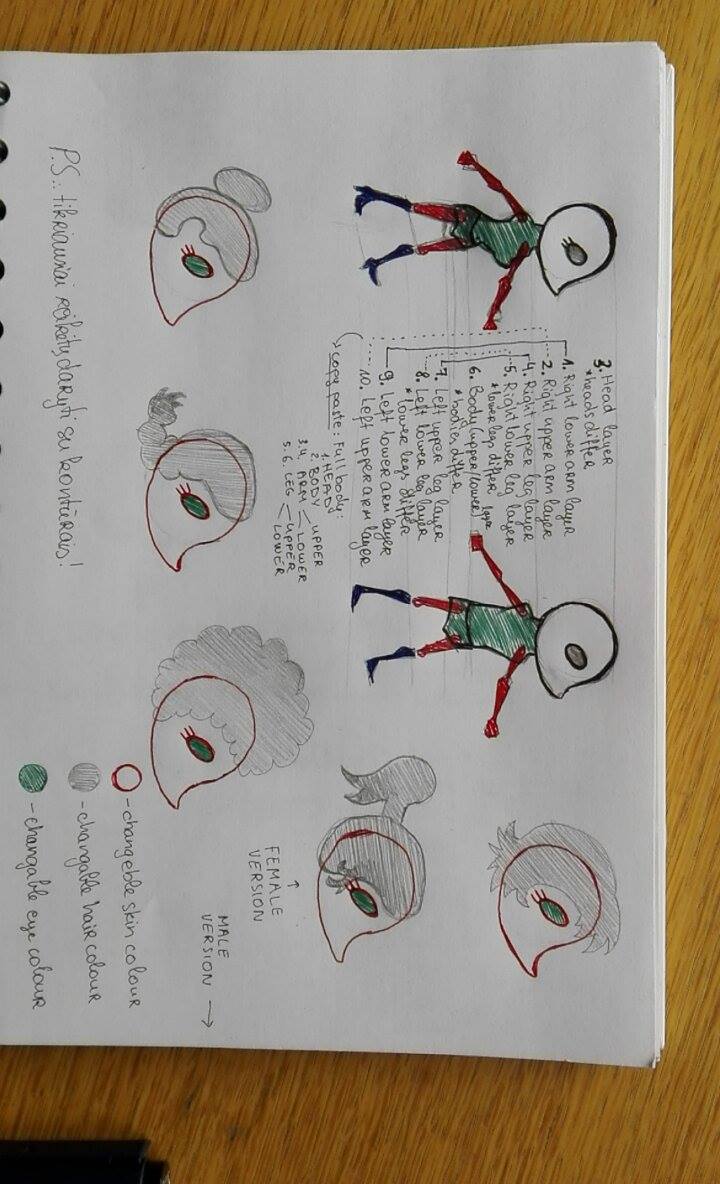 3. Head layer
*heads differ
1. Right lower arm layer
2. Right upper arm layer
4. Right upper leg layer
5. Right lower leg layer
*lower legs differ
6. Body (upper/lower) layer
*bodies differ
7. Left upper leg layer
8. Left lower leg layer
*lower legs differ
9. Left lower arm layer
10. Left upper arm layer
copy paste: Full body:
1. HEAD
2. BODY UPPER
3.4. ARM LOWER
5.6. LEG UPPER
LOWER
FEMALE
VERSION
MALE
VERSION
- changeble skin colour
- changable hair colour
- changable eye colour
P.S.: tikriausiai reikėtų daryti su kontūrais!